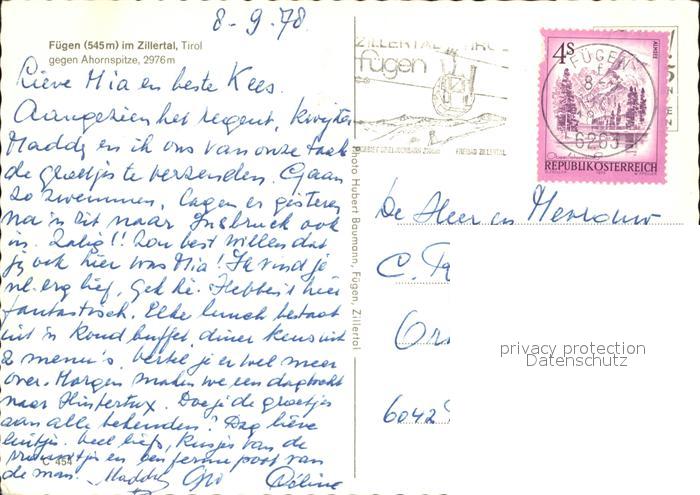 8-9-78.
Fügen (545 m) im Zillertal, Tirol
gegen Ahornspitze, 2976 m
Lieve Mia en beste Kees.
Aangezien het regent, kwijten
Maddy en ik ons van onze taak
de groetjes te verzenden. Gaan
zo zwemmen. Lagen er gisteren
na'n rit naar Insbruck ook
in. Zalig!! Zou best willen dat
jij ook hier was Mia! Ik vind je
nl. erg lief, gek hè. Hebben 't hier
fantastisch. Elke lunch bestaat
uit 'n koud buffet, diner keus uit
2 menu's. Vertel je er wel meer
over. Morgen maken we een dagtocht
naar Hintertux. Doe je de groetjes
aan alle bekenden? Dag lieve
luitjes. Veel liefs, kusjes van de
vrouwtjes en een ferme poot van
de man. Maddy Céline
C 454
Photo Hubert Baumann, Fügen, Zillertal
ZILLERTAL TIROL
fügen
FREIBAD ZILLERTAL
4S
ALMSEE
REPUBLIK ÖSTERREICH
FÜGEN
6263
De Heer en Mevrouw
C.
6042
privacy protection
Datenschutz